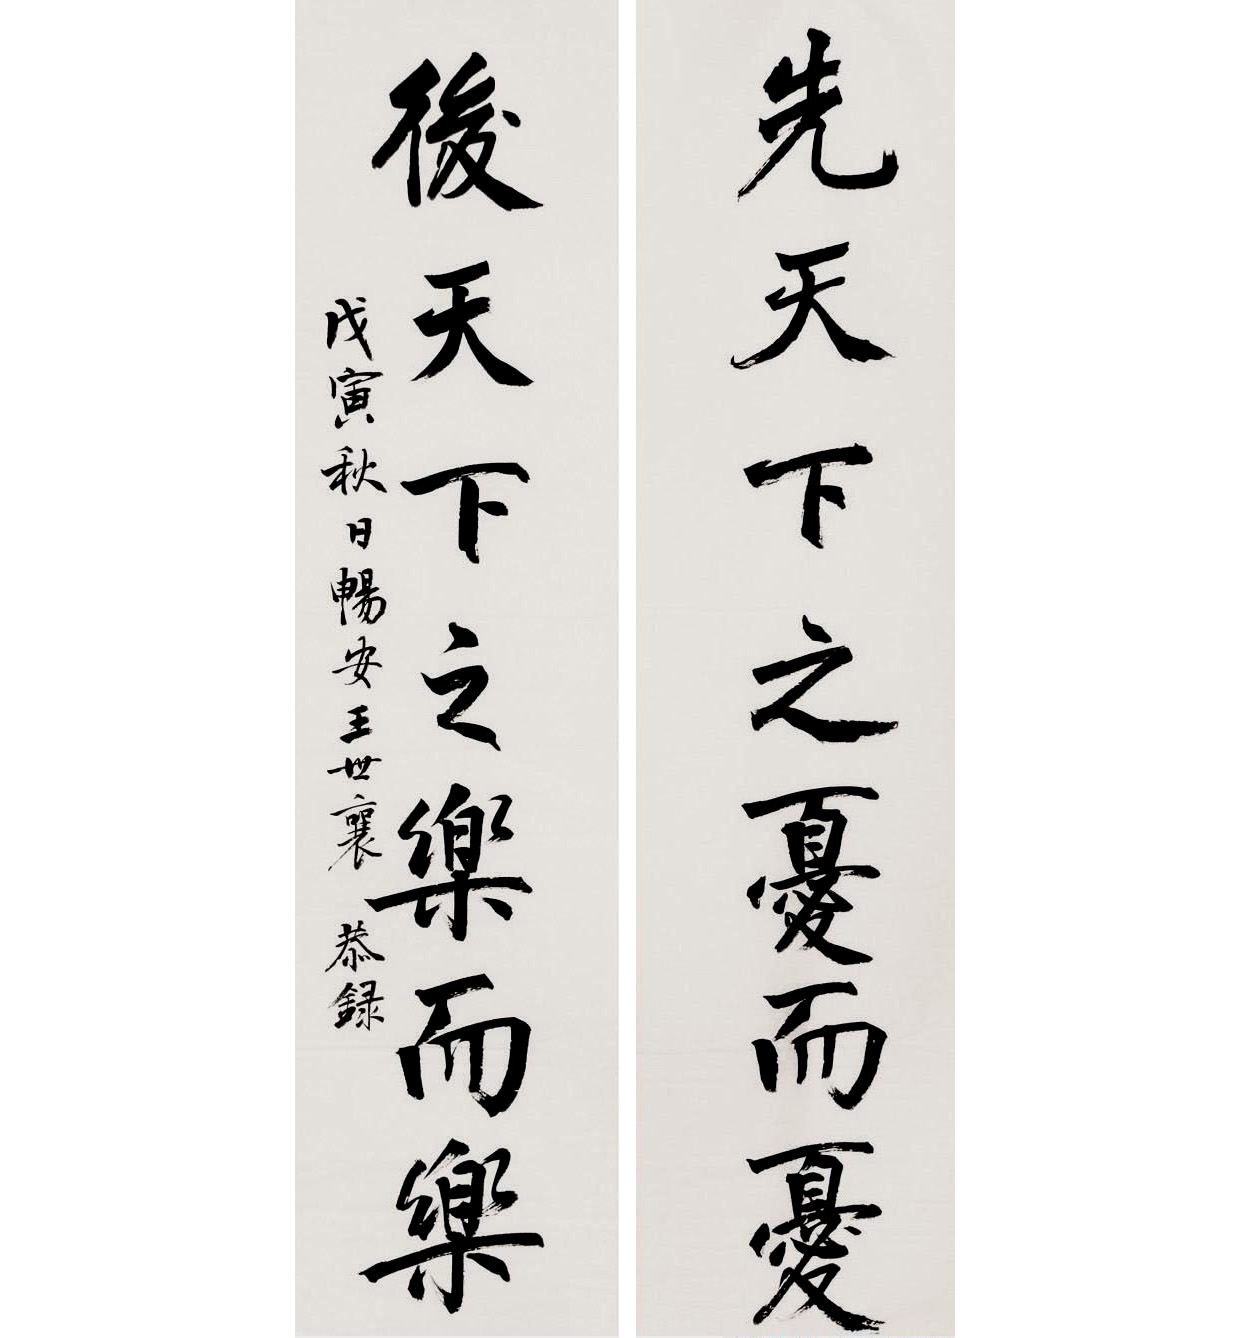 先天下之憂而憂
後天下之樂而樂
戊寅秋日暢安王世襄 恭録